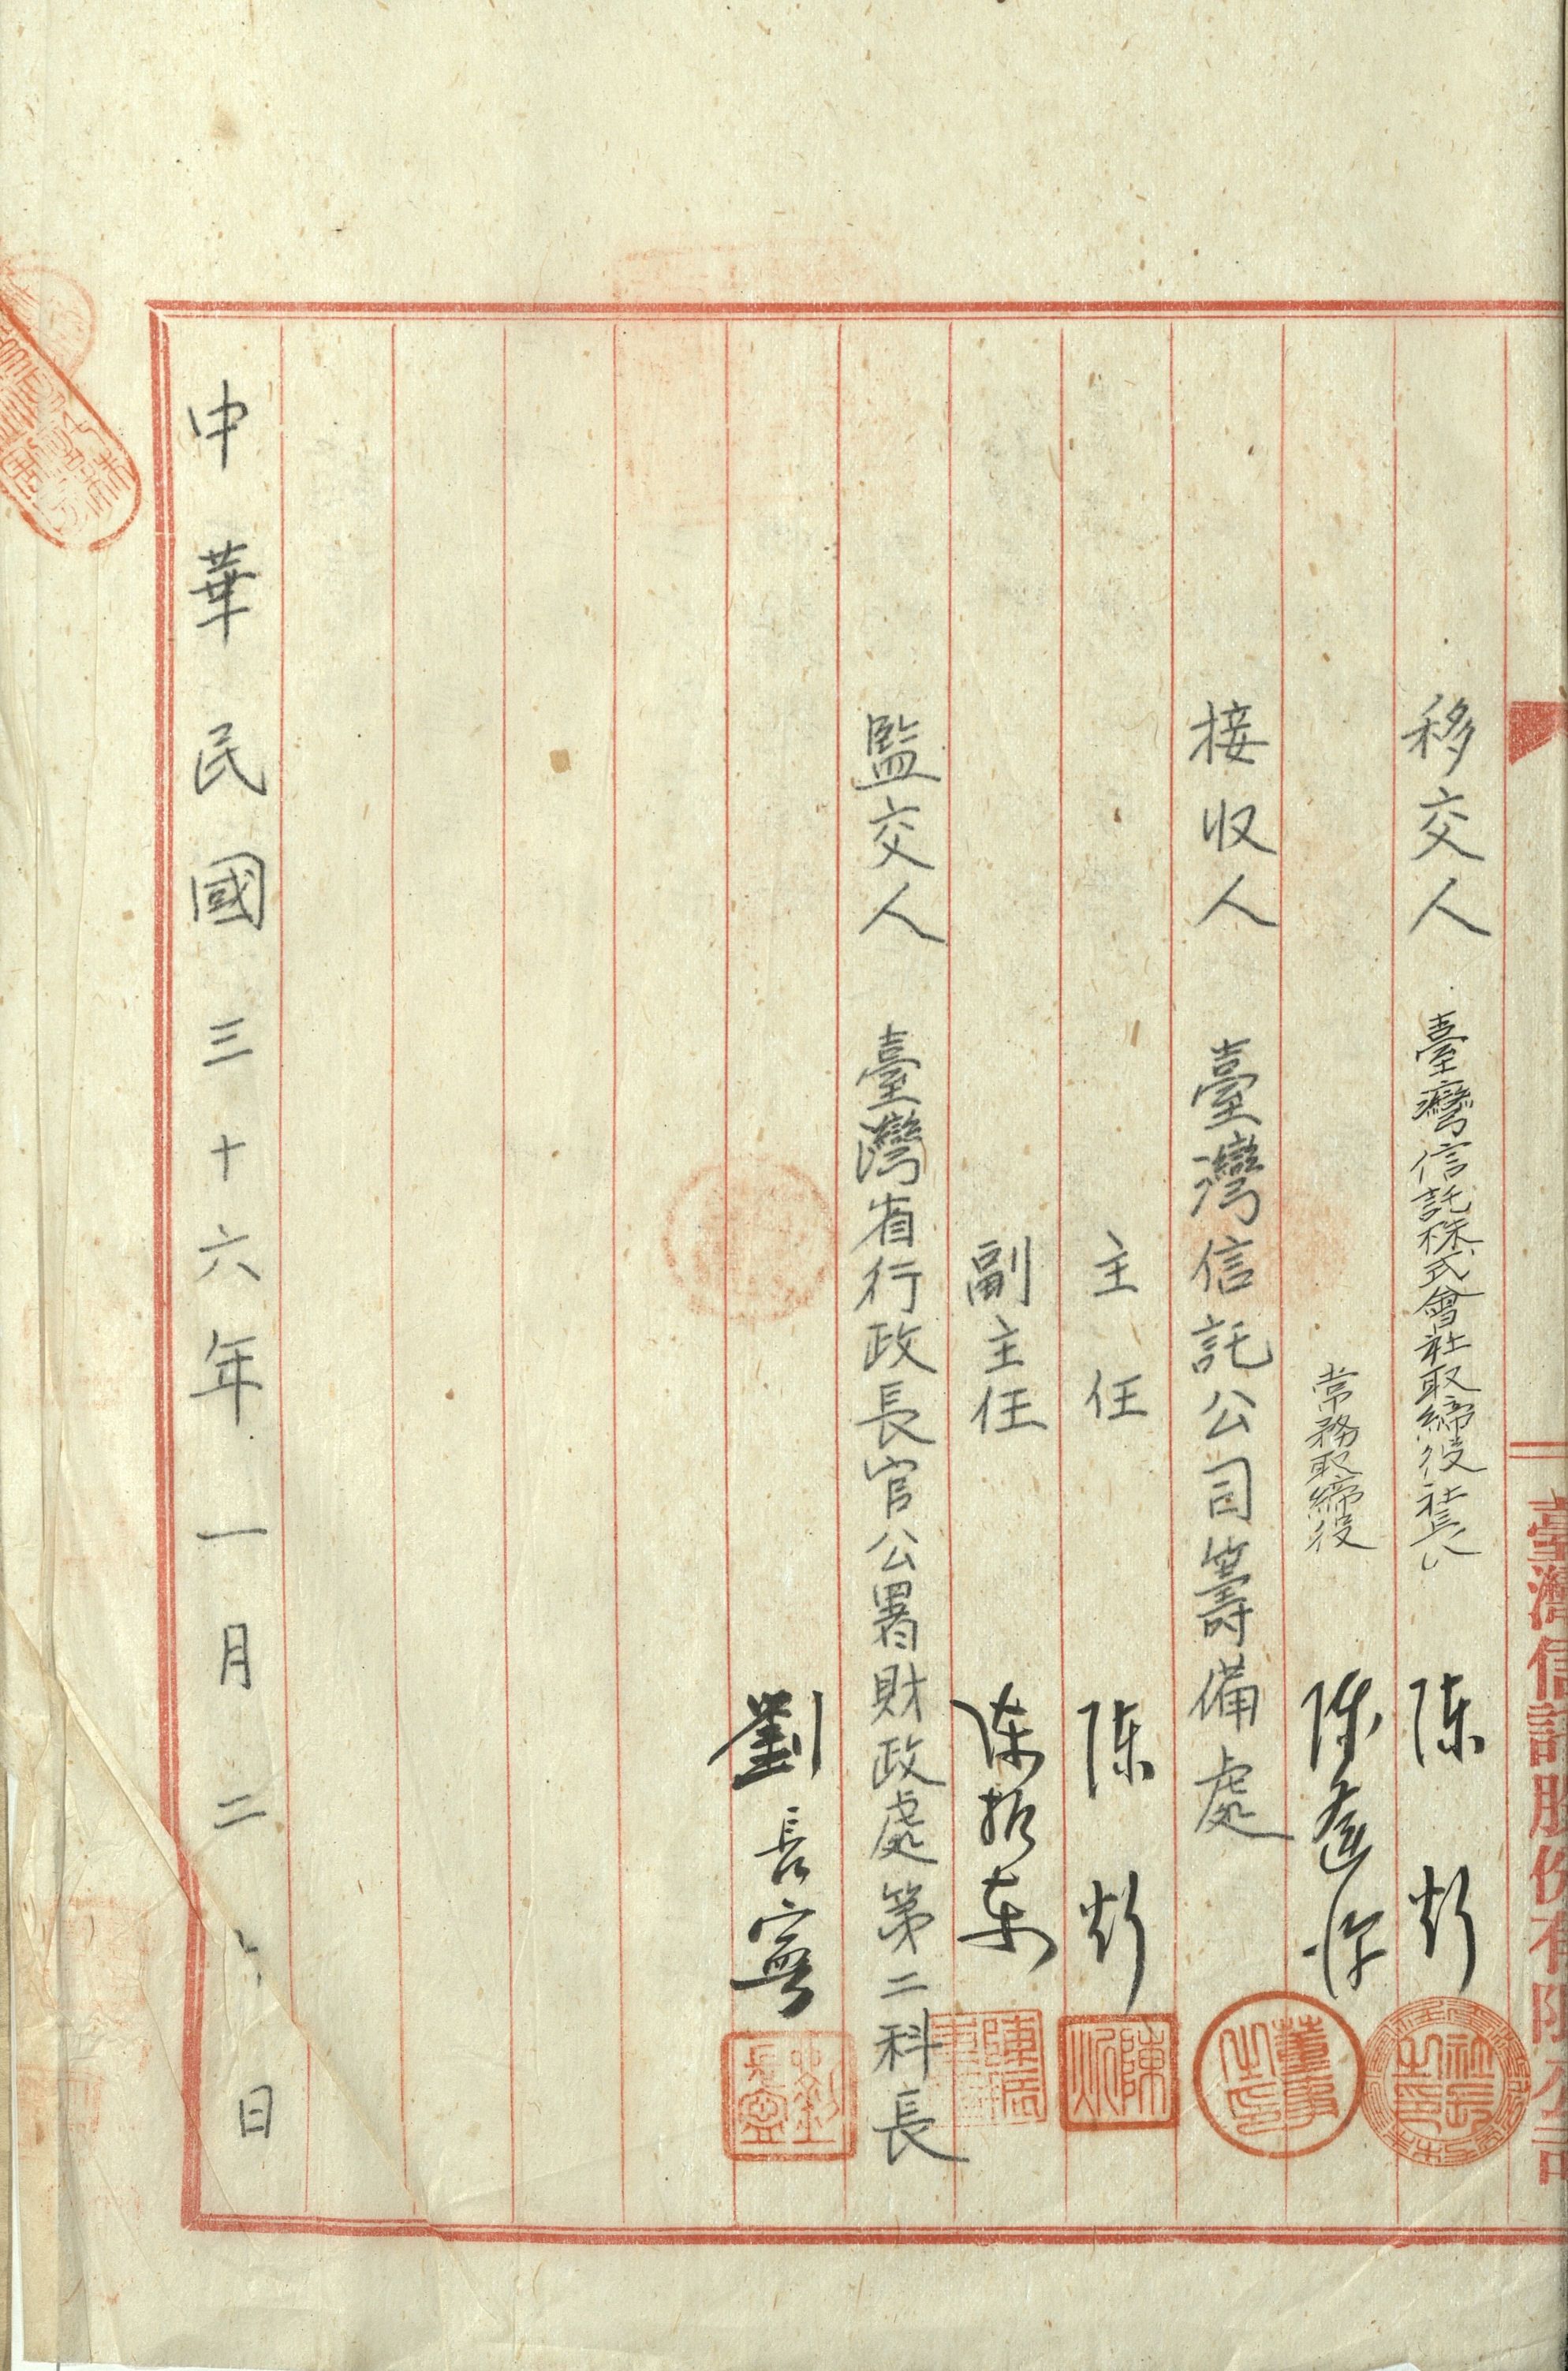 臺灣信託股份有限公司
移交人 臺灣信託株式會社取締役社長 陳炘
常務取締役 陳逢源
接收人 臺灣信託公司籌備處
主任 陳炘
副主任
監交人 臺灣省行政長官公署財政處第二科長
劉長寧
中華民國三十六年一月二 日
社長之印
董事之印
陳炘
劉長寧